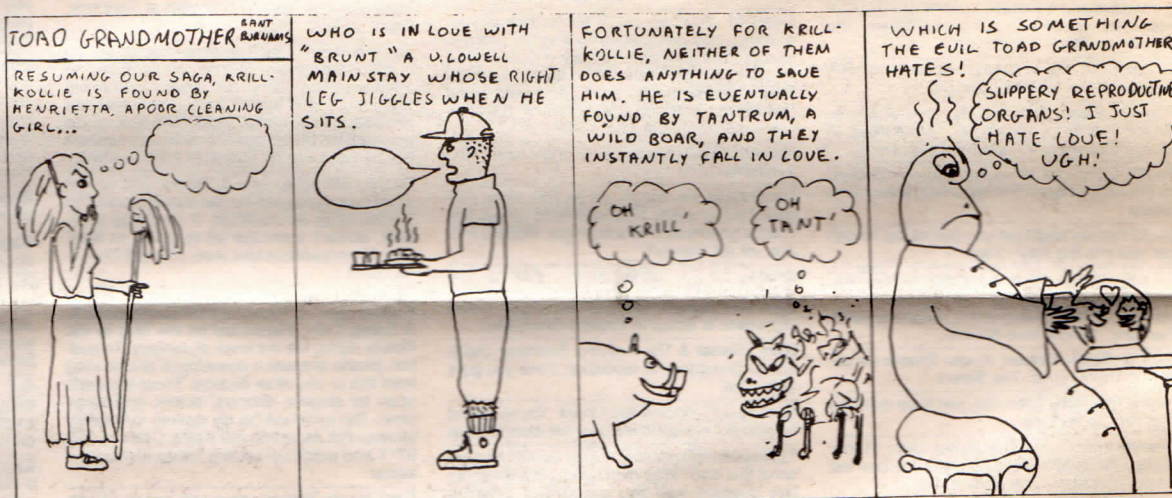 TOAD GRANDMOTHER
BANT
BURNAMS
RESUMING OUR SAGA, KRILL-
KOLLIE IS FOUND BY
HENRIETTA, A POOR CLEANING
GIRL...
WHO IS IN LOVE WITH
"BRUNT" A U.LOWELL
MAINSTAY WHOSE RIGHT
LEG JIGGLES WHEN HE
SITS.
FORTUNATELY FOR KRILL-
KOLLIE, NEITHER OF THEM
DOES ANYTHING TO SAVE
HIM. HE IS EVENTUALLY
FOUND BY TANTRUM, A
WILD BOAR, AND THEY
INSTANTLY FALL IN LOVE.
OH
KRILL'
OH
TANT'
WHICH IS SOMETHING
THE EVIL TOAD GRANDMOTHER
HATES!
SLIPPERY REPRODUCTIVE
ORGANS! I JUST
HATE LOVE!
UGH!